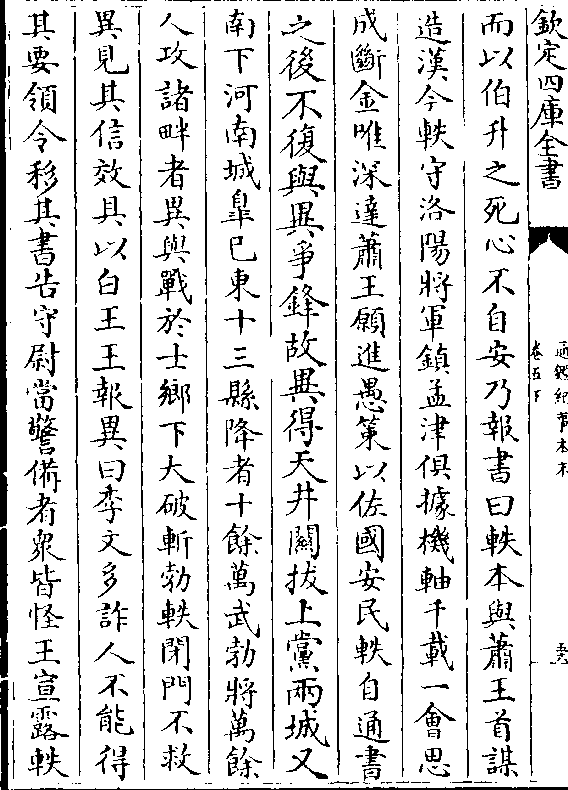 欽定四庫全書
通鑑紀事本末
卷五下
而以伯升之死心不自安乃報書曰軼本與蕭王首謀
造漢今軼守洛陽將軍鎮孟津俱據機軸千載一會思
成斷金唯深達蕭王願進愚策以佐國安民軼自通書
之後不復與異爭鋒故異得天井關拔上黨兩城又
南下河南城臯已東十三縣降者十餘萬武勃將萬餘
人攻諸畔者異與戰於士鄉下大破斬勃軼閉門不救
異見其信效具以白王王報異曰季文多詐人不能得
其要領令移其書告守尉當警備者衆皆怪王宣露軼